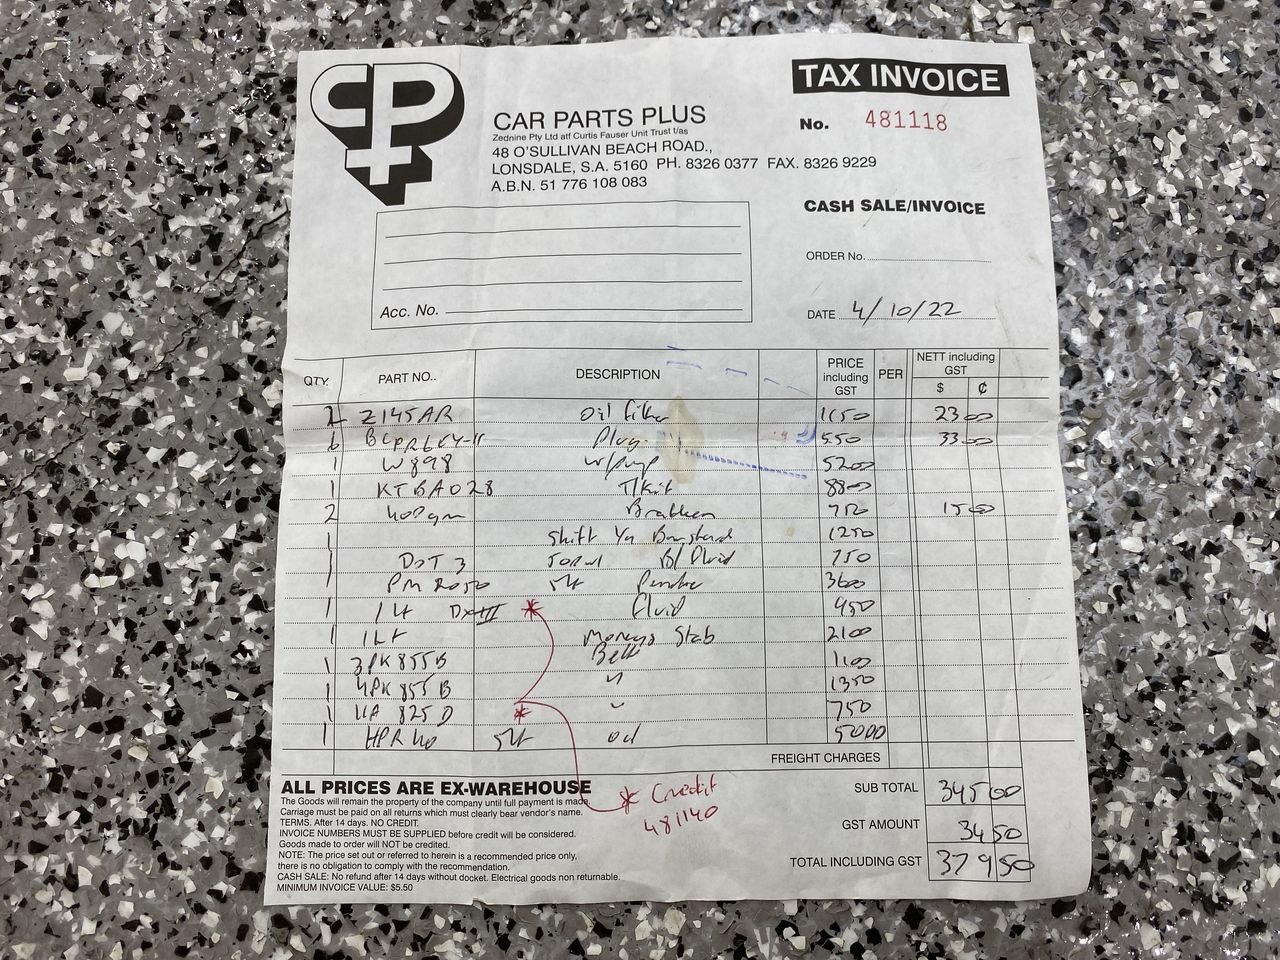 CP
TAX INVOICE
No. 481118
CAR PARTS PLUS
Zednine Pty Ltd atf Curtis Fauser Unit Trust t/as
48 O'SULLIVAN BEACH ROAD.,
LONSDALE, S.A. 5160 PH. 8326 0377 FAX. 8326 9229
A.B.N. 51 776 108 083
CASH SALE/INVOICE
ORDER No.
Acc. No.
DATE 4/10/22
QTY. PART NO.. DESCRIPTION PRICE including GST PER NETT including GST $ ¢
2 Z145AR Oil filter 1150 23 00
6 Plug 550 33 00
1 W898 w/pump 5200
1 KTBA028 T/Kit 8800
2 400gm 750 15 00
1 Shift 1250
1 DOT 3 500ml B/Fluid 750
1 PM 2050 5Lt 3600
1 1Lt Dx III * Fluid 950
1 1Lt Moreys Stab 2100
1 3PK 855B Belt 1100
1 4PK 855B " 1350
1 11A 825 D * " 750
1 HPR 40 5Lt oil 5000
FREIGHT CHARGES
ALL PRICES ARE EX-WAREHOUSE
The Goods will remain the property of the company until full payment is made.
Carriage must be paid on all returns which must clearly bear vendor's name.
TERMS. After 14 days. NO CREDIT.
INVOICE NUMBERS MUST BE SUPPLIED before credit will be considered.
Goods made to order will NOT be credited.
NOTE: The price set out or referred to herein is a recommended price only,
there is no obligation to comply with the recommendation.
CASH SALE: No refund after 14 days without docket. Electrical goods non returnable.
MINIMUM INVOICE VALUE: $5.50
* Credit
481140
SUB TOTAL 345 00
GST AMOUNT 34 50
TOTAL INCLUDING GST 379 50